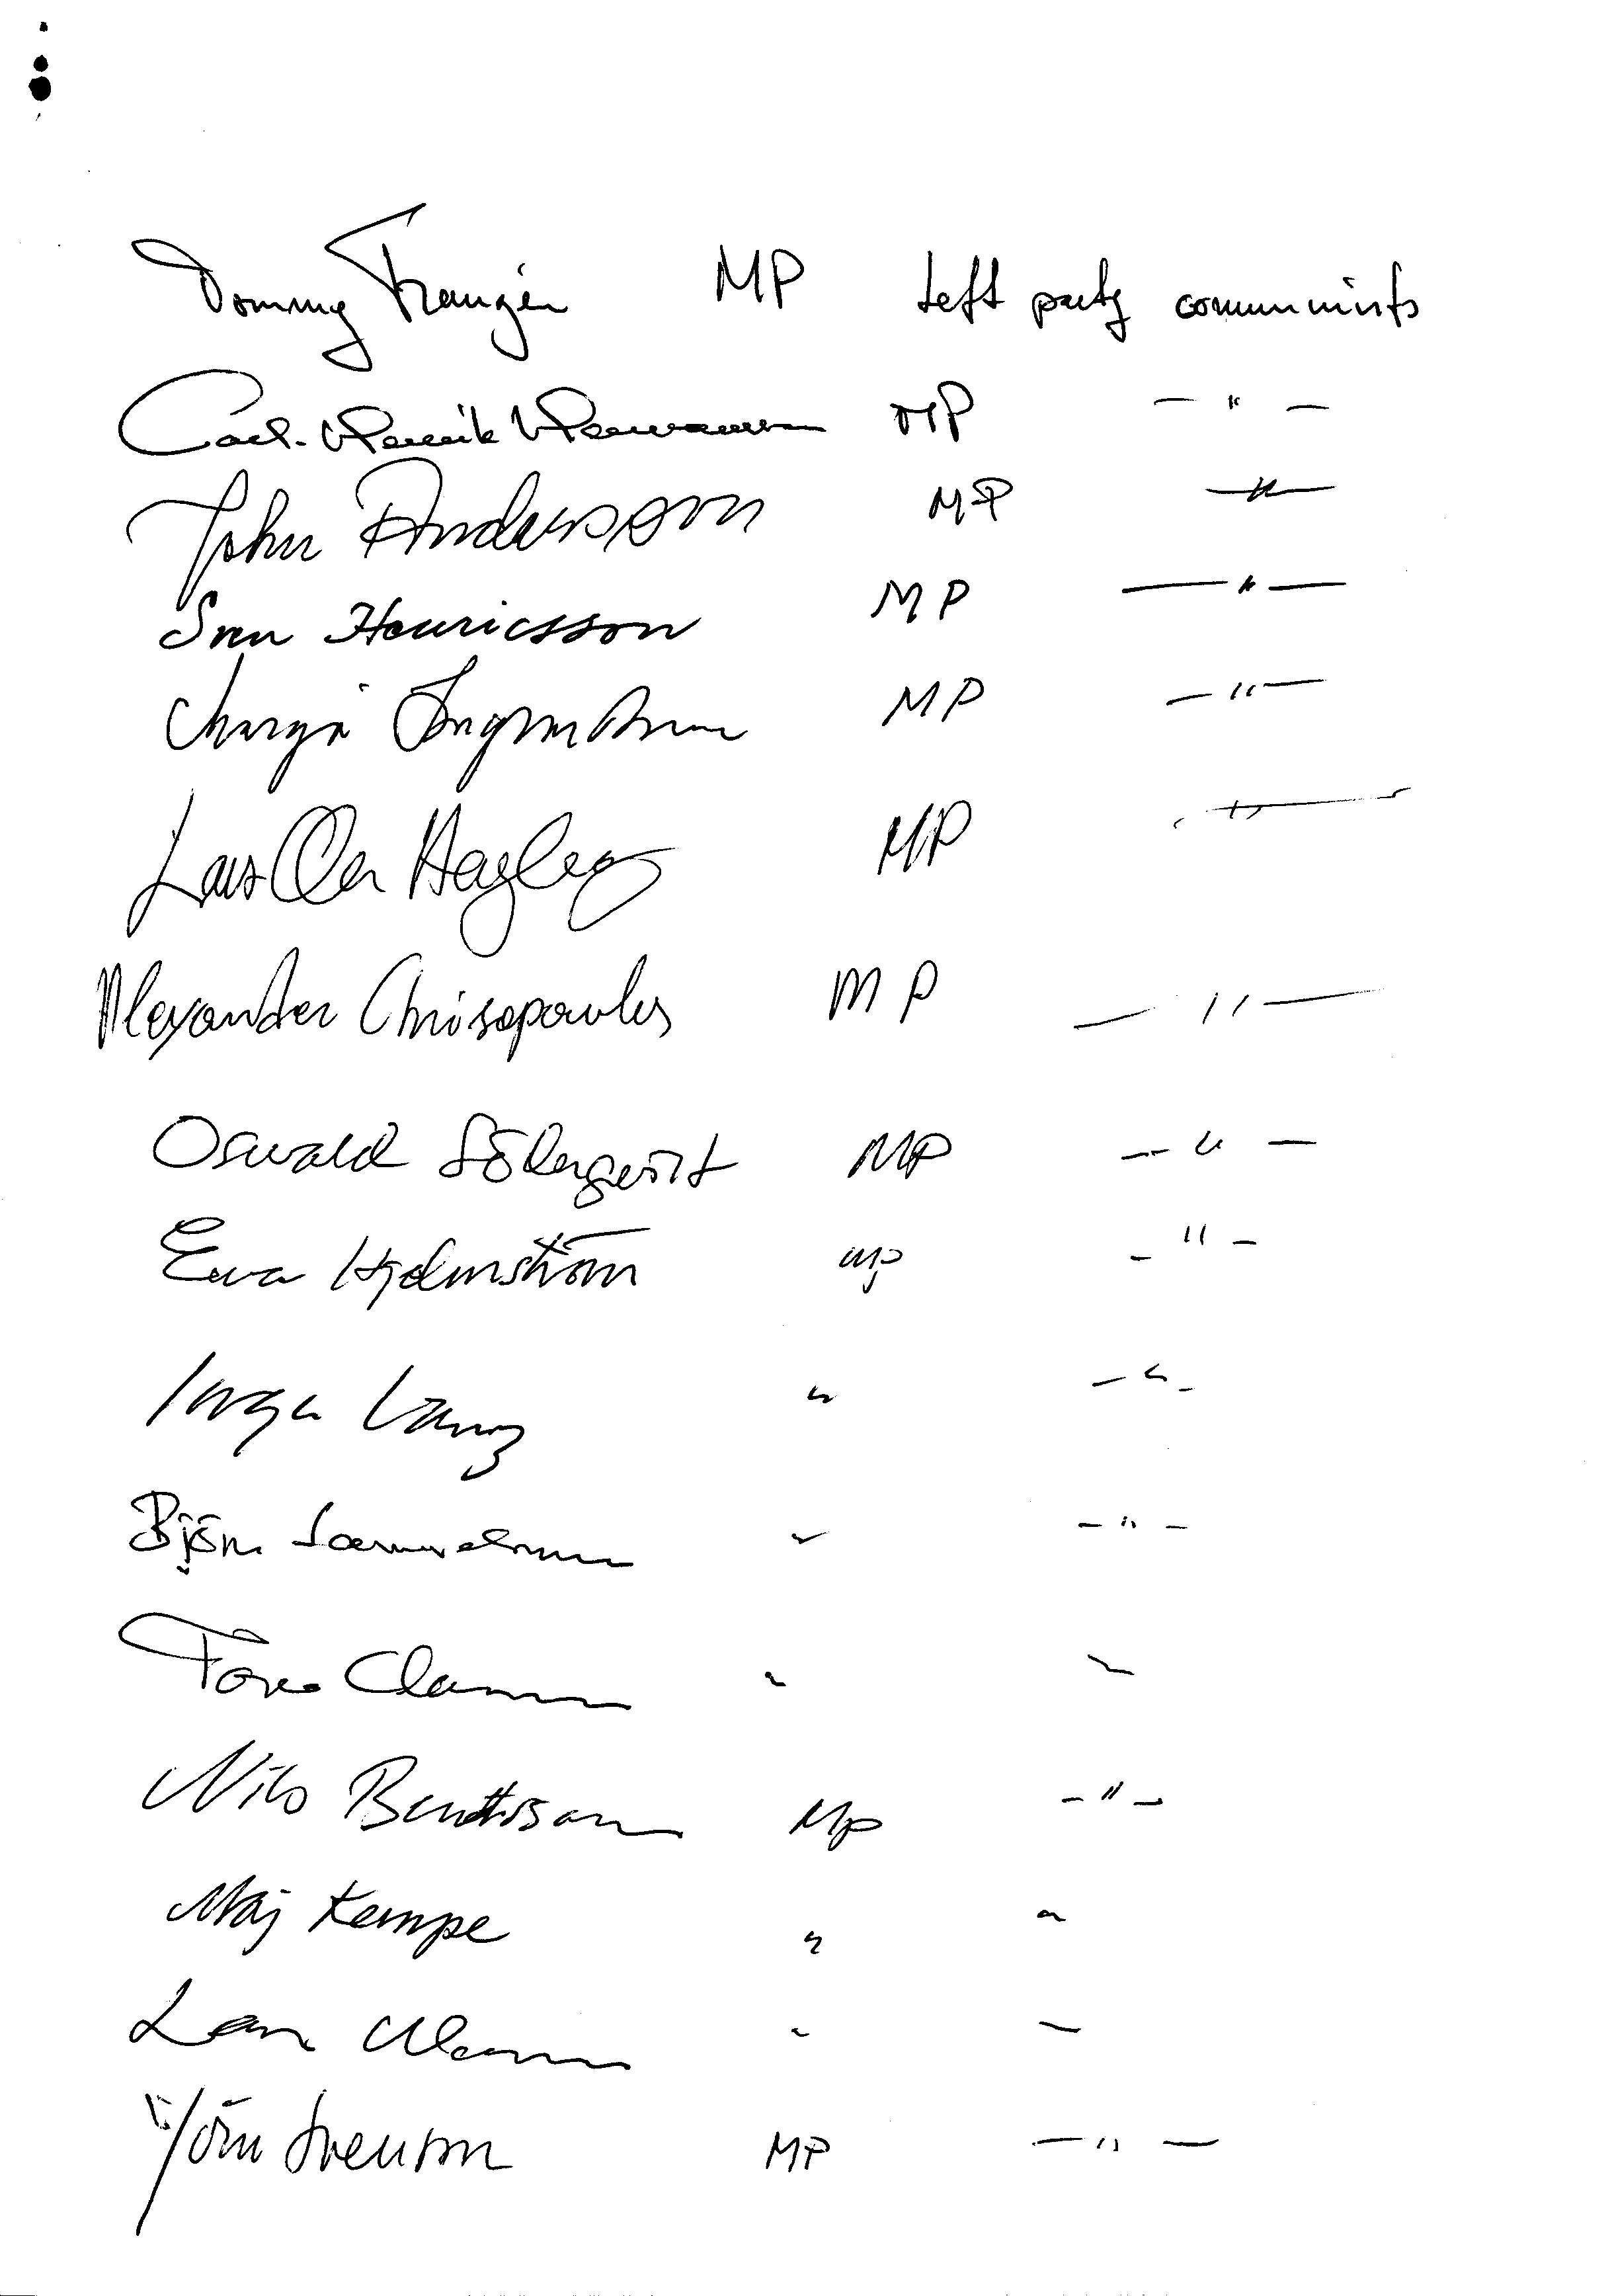 Tommy Franzén MP Left party communists
Carl-Henrik Hermansson MP — " —
John Andersson MP — " —
Sven Henricsson MP — " —
Marga Ingvardsson MP — " —
Lars Ove Hagberg MP — " —
Alexander Chrisopoulos MP — " —
Oswald Söderqvist MP — " —
Eva Hjelmström MP — " —
Inga Lantz " — " —
Björn Samuelson " — " —
Tore Claeson " "
Nils Berndtson MP — " —
Maj Kempe " "
Lars Werner " "
Jörn Svensson MP — " —